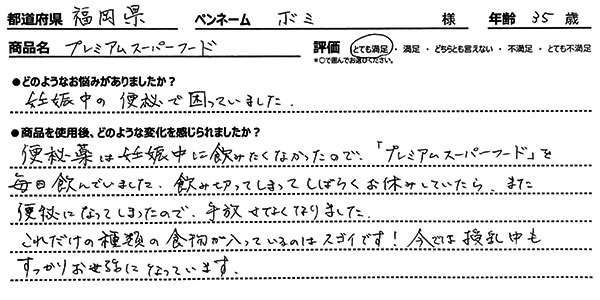 都道府県 福岡県 ペンネーム ボミ 様 年齢 35 歳
商品名 プレミアムスーパーフード 評価 とても満足 ・ 満足 ・ どちらとも言えない ・ 不満足 ・ とても不満足
*○で囲んでお選びください。
●どのようなお悩みがありましたか？
妊娠中の便秘で困っていました.
●商品を使用後、どのような変化を感じられましたか？
便秘薬は妊娠中に飲みたくなかったので、「プレミアムスーパーフード」を
毎日飲んでいました. 飲み切ってしまってしばらくお休みしていたら、また
便秘になってしまったので、手放せなくなりました.
これだけの種類の食物が入っているのはスゴイです! 今では授乳中も
すっかりお世話になっています.